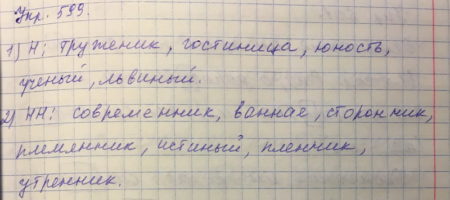 Упр. 599.
1) Н: труженик, гостиница, юность,
ученый, львиный.
2) НН: современник, ванная, сторонник,
племянник, истиный, пленник,
утренник.